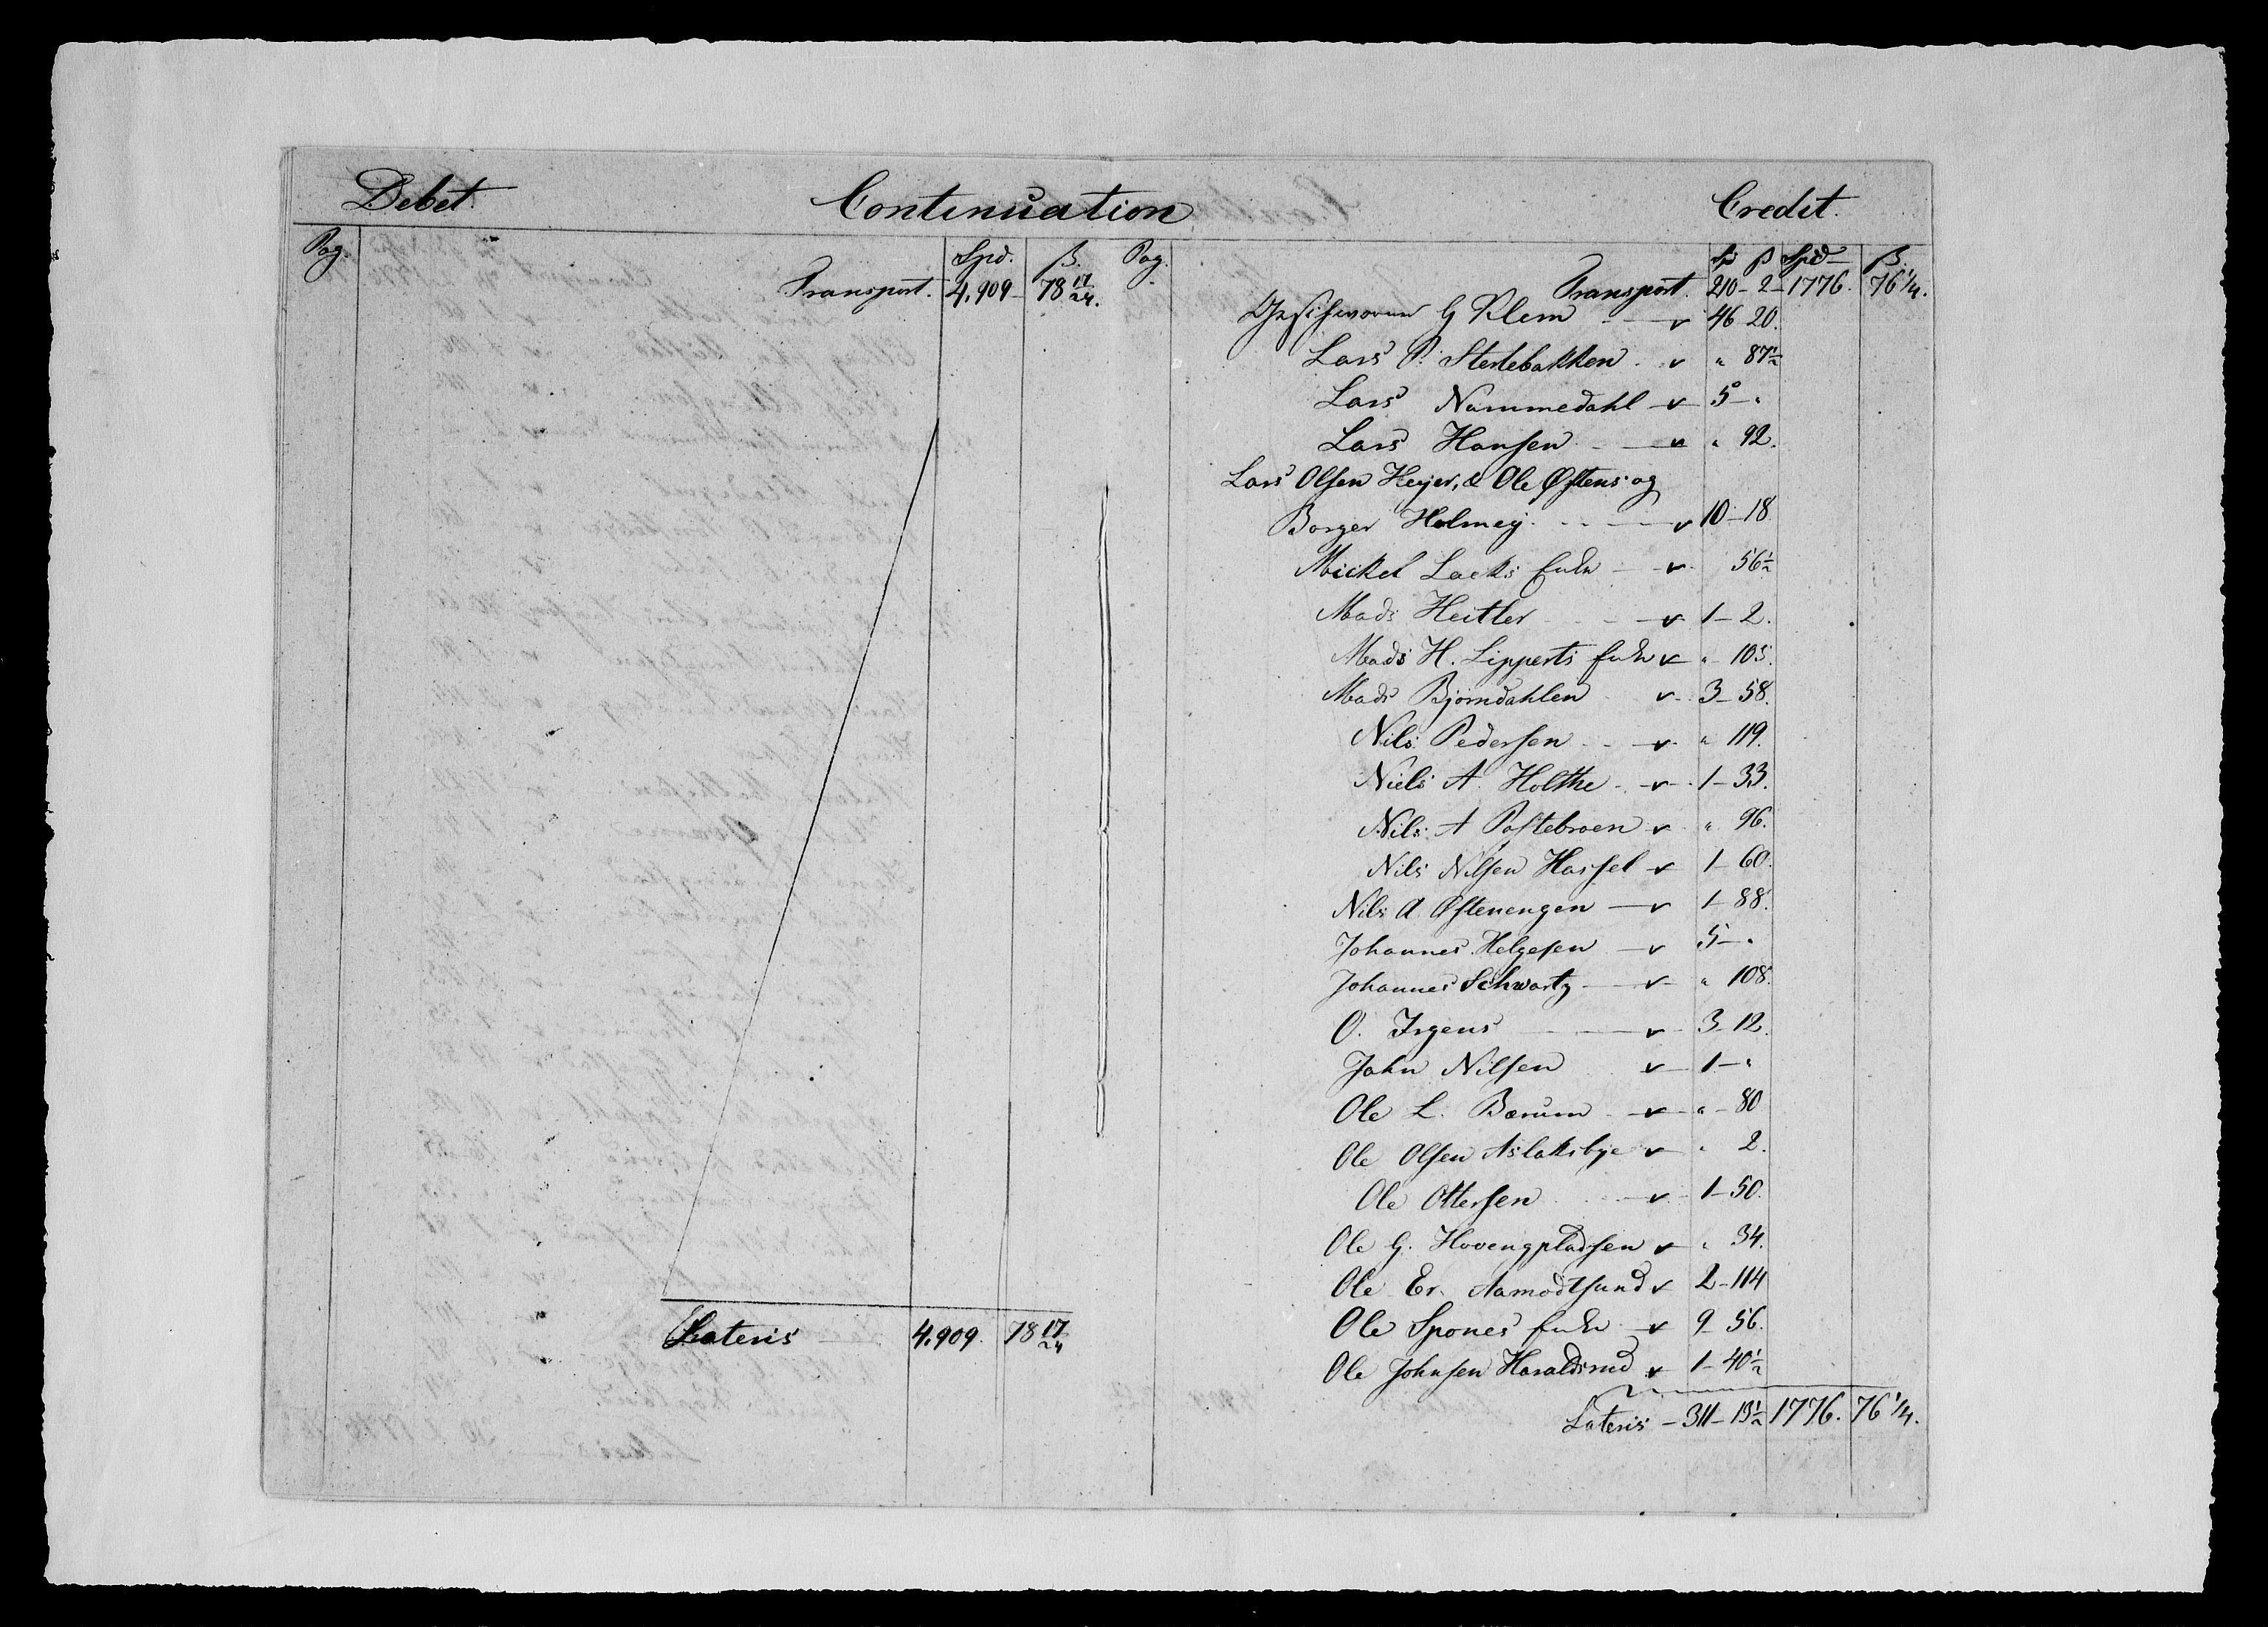 Debet. Continuation Credit.
Pag. Spd. ß. Pag. Sp ß Spd ß.
Transport. 4,909 78 17/24. Transport. 210 - 2 - 1776. 76 1/4.
G Klem v 46 20.
Lars P. Sterlebakken v " 87 1/2
Lars Nummedahl v 5 - "
Lars Hansen v " 92.
Lars Olsen Heyer, & Ole Østens og
Borger Holmey v 10 - 18
Mickel Lacks Enke v 56 1/2
Mads Heitler v 1 - 2.
Mads H. Lipperts Enke v " 105.
Mads Bjørndahlen v 3 - 58.
Nils Pedersen v " 119.
Niels A. Holthe v 1 - 33.
Nils A Postebroen v " 96.
Nils Nilsen Hassel v 1 - 60.
Nils A Østenengen v 1 - 88.
Johannes Helgesen v 5 - "
Johannes Schwartz v " 108.
O. Irgens v 3 - 12.
John Nilsen v 1 - "
Ole L. Bærum v " - 80
Ole Olsen Aslaksbye v " 2.
Ole Ottersen v 1 - 50.
Ole G. Hovengpladsen v " 34.
Ole Er. Aamodtsund v 2 - 114
Ole Spones Enke v 9 - 56.
Ole Johnsen Haraldsrud v 1 - 40 1/2
Lateris 4,909. 78 17/24
Lateris - 311 - 13 1/2 1776. 76 1/4.